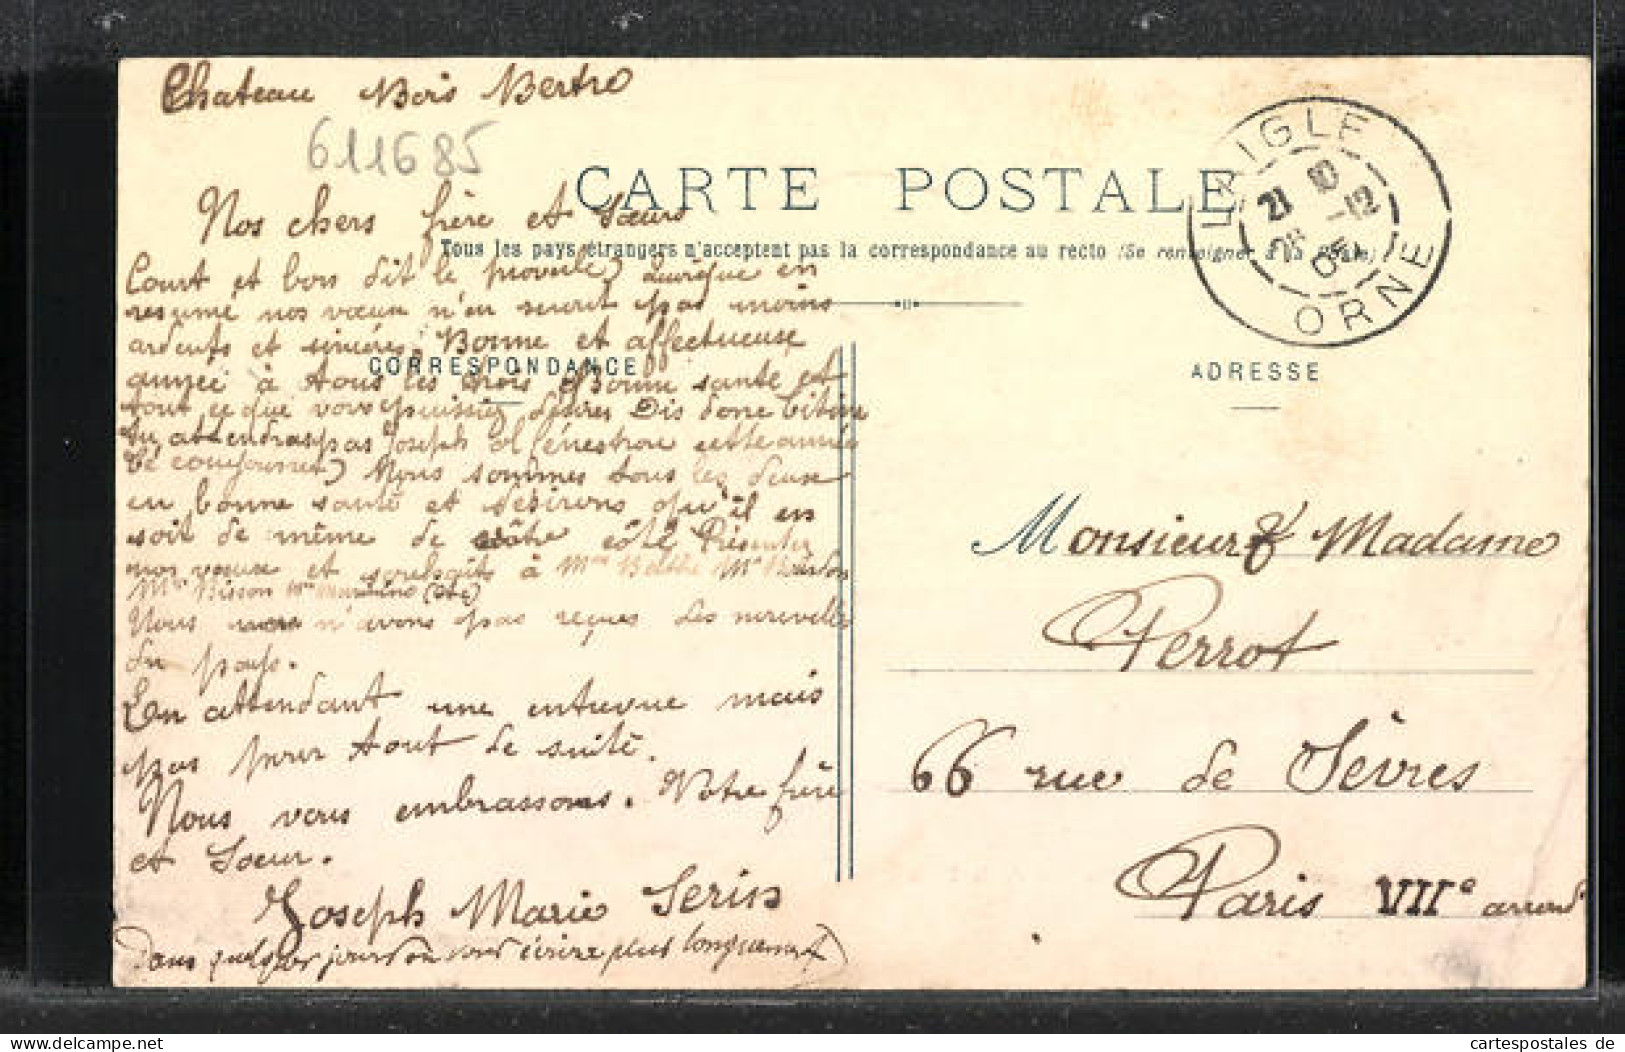 Chateau Bois Bertre
611685
CARTE POSTALE
Tous les pays étrangers n'acceptent pas la correspondance au recto (Se renseigner à la Poste)
L'AIGLE
21 10
-12
05
ORNE
CORRESPONDANCE
ADRESSE
Nos chers frère et sœurs
Court et bors dit le proverbe) en
resumé nos vœux n'en seront pas moins
ardents et sincères. Bonne et affectueuse
année à tous les trois Bonne santé et
tout ce que vous puissiez désires Dis donc
tu attendras pas Joseph cette année
Nous sommes tous les deux
en bonne santé et desirons qu'il en
soit de même de vôtre côté Présenter
nos vœux et souhaits à Mme Mr
Mr Bisson Mme
Nous n'avons pas reçues des nouvelle
du pays.
En attendant une entrevue mais
pas pour tout de suite.
Nous vous embrassons. Votre frère
et Sœur.
Joseph Marie
Dans quelques jours on vous écrire plus longuement
Monsieur & Madame
Perrot
66 rue de Sèvres
Paris VIIe arrond
www.cartespostales.de
www.delcampe.net
cartespostales de